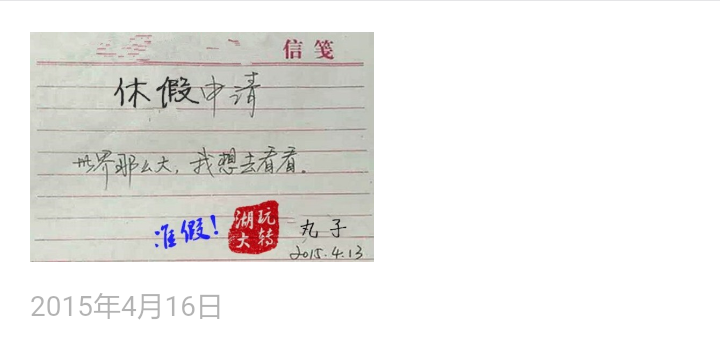 信笺
休假申请
世界那么大，我想去看看。
准假！
玩转
湖大
丸子
2015.4.13
2015年4月16日